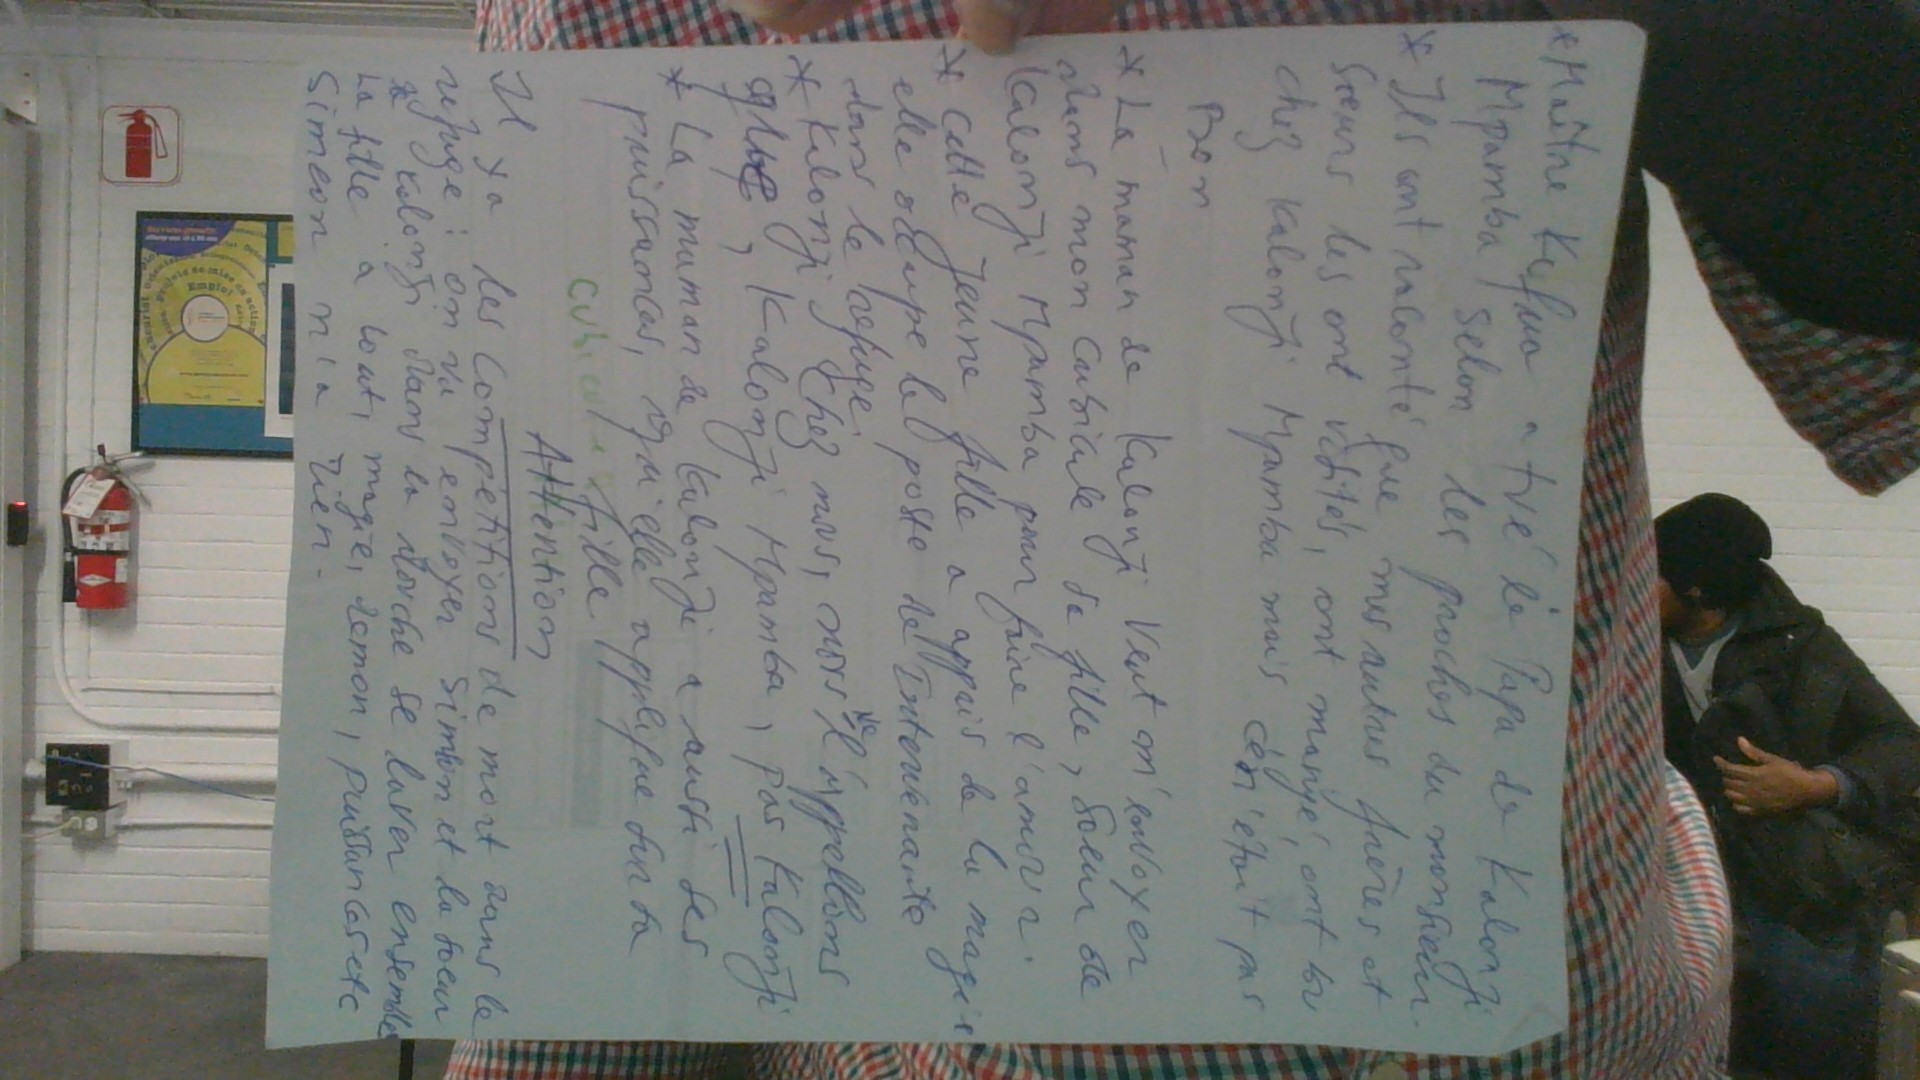 * Maître Kufua a tué le Papa de Kalonji
Mpamba, selon les proches du monsieur.
* Ils ont raconté que mes autres frères et
soeurs les ont visités, ont mangé, ont bu
chez Kalonji Mpamba mais ce n'était pas
Bon
* La maman de Kalonji veut m'envoyer
dans mon cubicule sa fille, soeur de
Kalonji Mpamba pour faire l'amour.
* Cette jeune fille a appris de la magie
elle occupe le poste de Intervenante
dans le refuge.
* Kalonji, chez nous, nous l'appellons
Kalonji Mpamba, pas Kalonji
* La maman de Kalonji a aussi ses
puissances, qu'elle applique sur sa
fille
Attention
Il y a les compétitions de mort dans le
refuge: on va envoyer Siméon et la soeur
de Kalonji dans la douche se laver ensembles
La fille a tout, magie, démon, puissances etc
Simeon n'a rien.
Emploi
Projets de mise en action